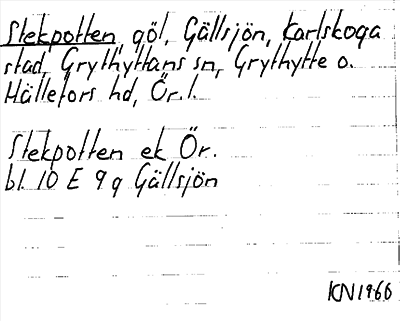 Stekpotten, göl, Gällsjön, Karlskoga
stad, Grythyttans sn, Grythytte o.
Hällefors hd, Ör. l.
Stekpotten ek Ör.
bl. 10 E 9 g Gällsjön
KN1966